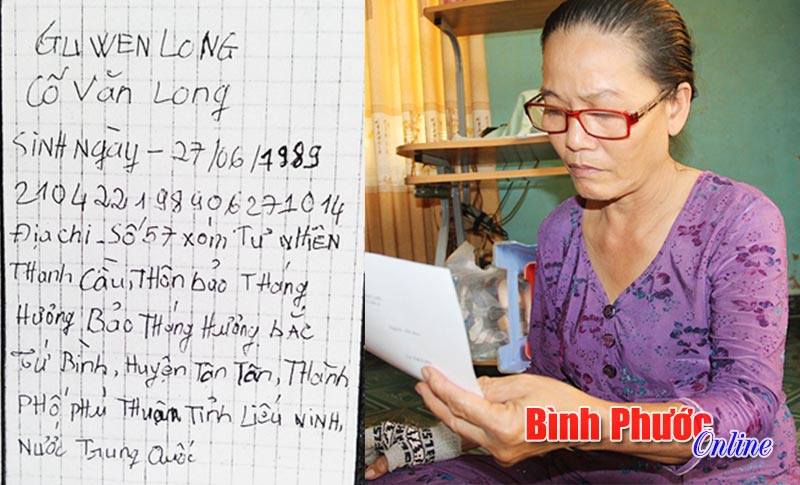 GU WEN LONG
Cố Văn Long
SINH Ngày - 27/06/1989
210422198906271014
Địa chỉ - Số 57 xóm Tự NHIÊN
THanh Cầu, THôn bảo THắng
Hưởng Bảo THắng Hương bắc
Tứ Bình, Huyện Tân Tân, THành
PHố PHủ THuận Tỉnh Liễu NINH,
Nước Trung Quốc
Bình Phước
Online